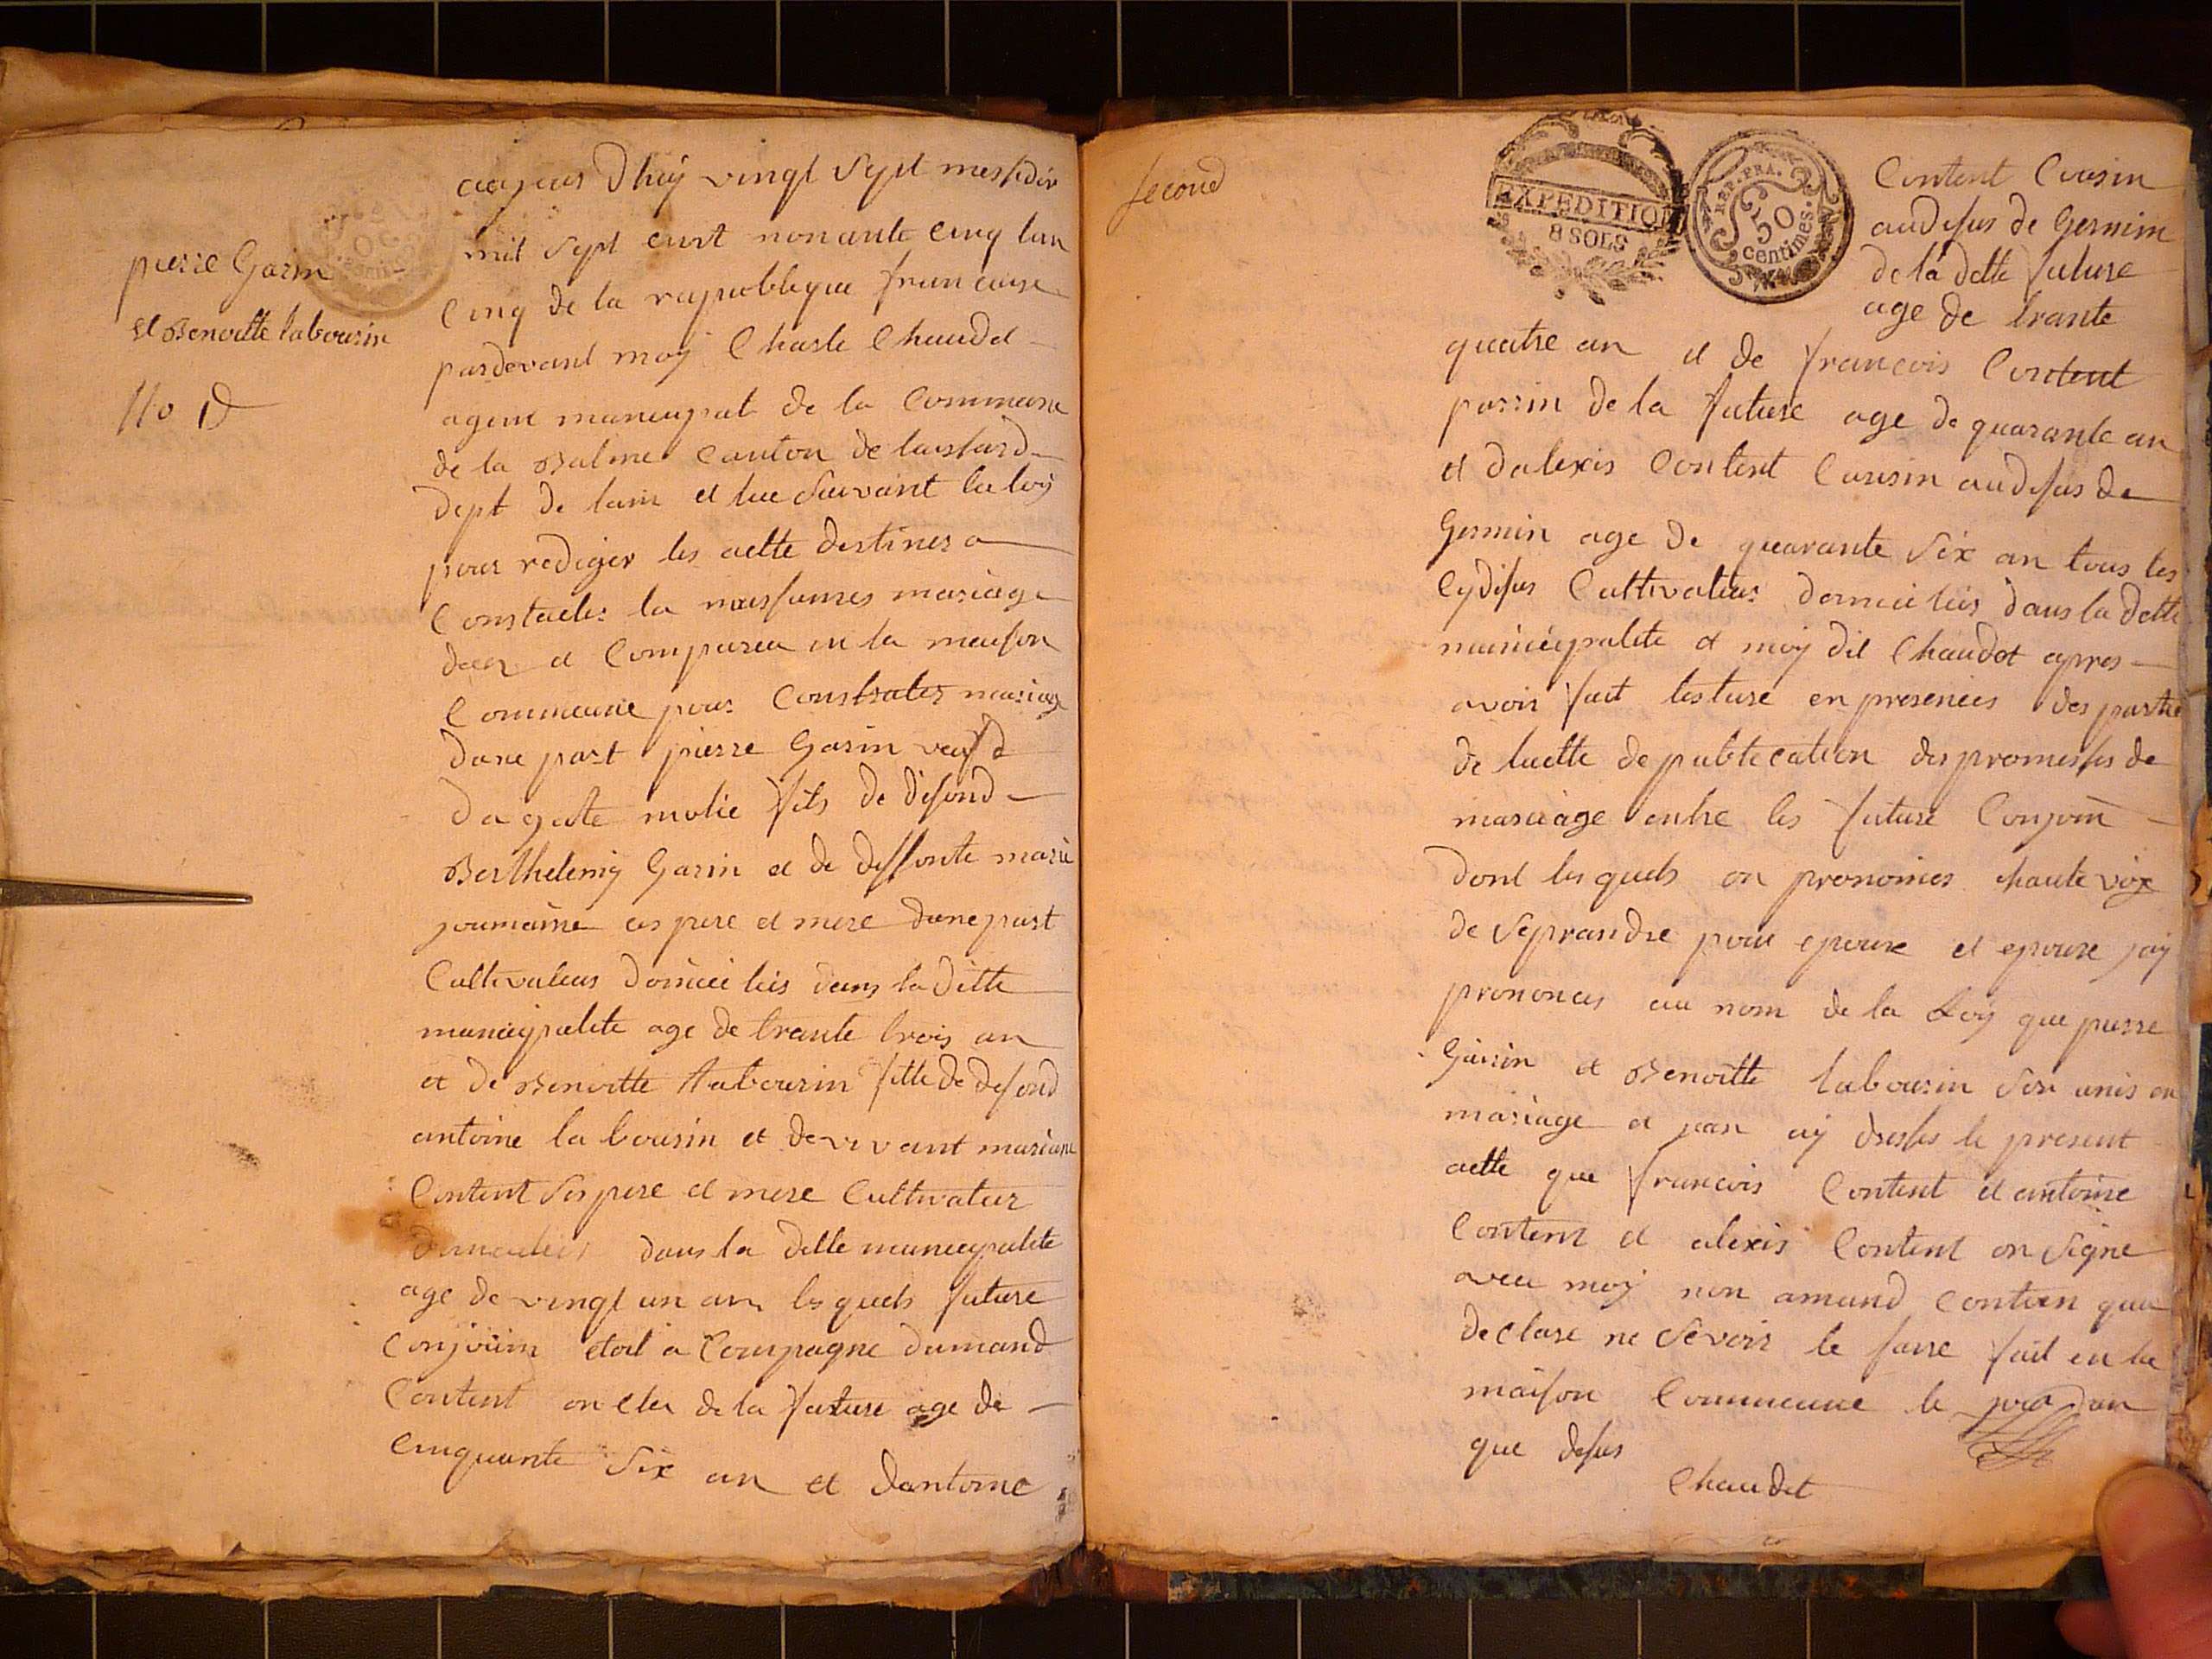 pierre Garin
et Benoitte labourin
No 10
aujour dhuy vingt sept messidor
mil sept cent nonante cinq lan
cinq de la republique francaise
pardevant moy Charle Chaudet
agent municipal de la Commune
de la Balme Canton de
dept de lain elue suivant la loy
pour rediger les actte destines a
Constater la naissances mariage
deces et Comparu en la maison
Commune pour Constrater mariage
dune part pierre Garin veuf d
dagate molie fils de defond
Berthelemy Garin et de deffonte marie
joumaine ces pere et mere dune part
Cultivateur domicilies dans la ditte
municipalite age de trante trois an
et de Benoitte labourin fille de defond
antoine labourin et de vivant mariane
Content ses pere et mere Cultivateur
domicilies dans la ditte municipalite
age de vingt un an lesquels future
Conjoin etoit a Compagne dumand
Content oncle de la future age de
Cinquante six an et dantoine
second
EXPEDITION
8 SOLS
REP. FRA.
50
centimes.
Content Cousin
audesus de Germin
de la ditte future
age de trante
quatre an et de francois Content
parrin de la future age de quarante an
et dalexis Content Cousin audesus de
Germin age de quarante six an tous les
Cydesus Cultivateur domicilies dans la ditte
municipalite et moy dit Chaudet apres
avoir fait lecture en presences des partie
de lactte de publication des promesses de
mariage entre les future Conjoin
dont lesquels on prononces haute voix
de seprandre pour epouse et epouse jay
prononces au nom de la Loy que pierre
Garin et Benoitte labourin son unis en
mariage et jean ay dresses le present
actte que francois Content et antoine
Content et alexis Content on signe
avec moy non amand Content que
declare ne sevoir le faire fait en la
maison Commune le jour dan
que desus
Chaudet